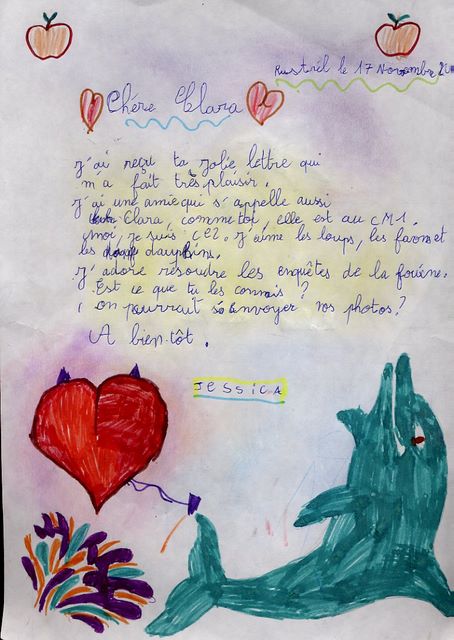 Rustrél le 17 Novembre
Chére Clara
J'ai reçu ta Jolie lettre qui
m'a fait très plaisir.
J'ai une amie qui s'appelle aussi
Clara comme toi, elle est au CM1.
moi, je suis CE2. J'aime les loups, les faons et
les dauphins.
J'adore résoudre les enquêtes de la fouine.
Est ce que tu les connais ?
on pourrait s'envoyer nos photos ?
A bientôt.
JESSICA